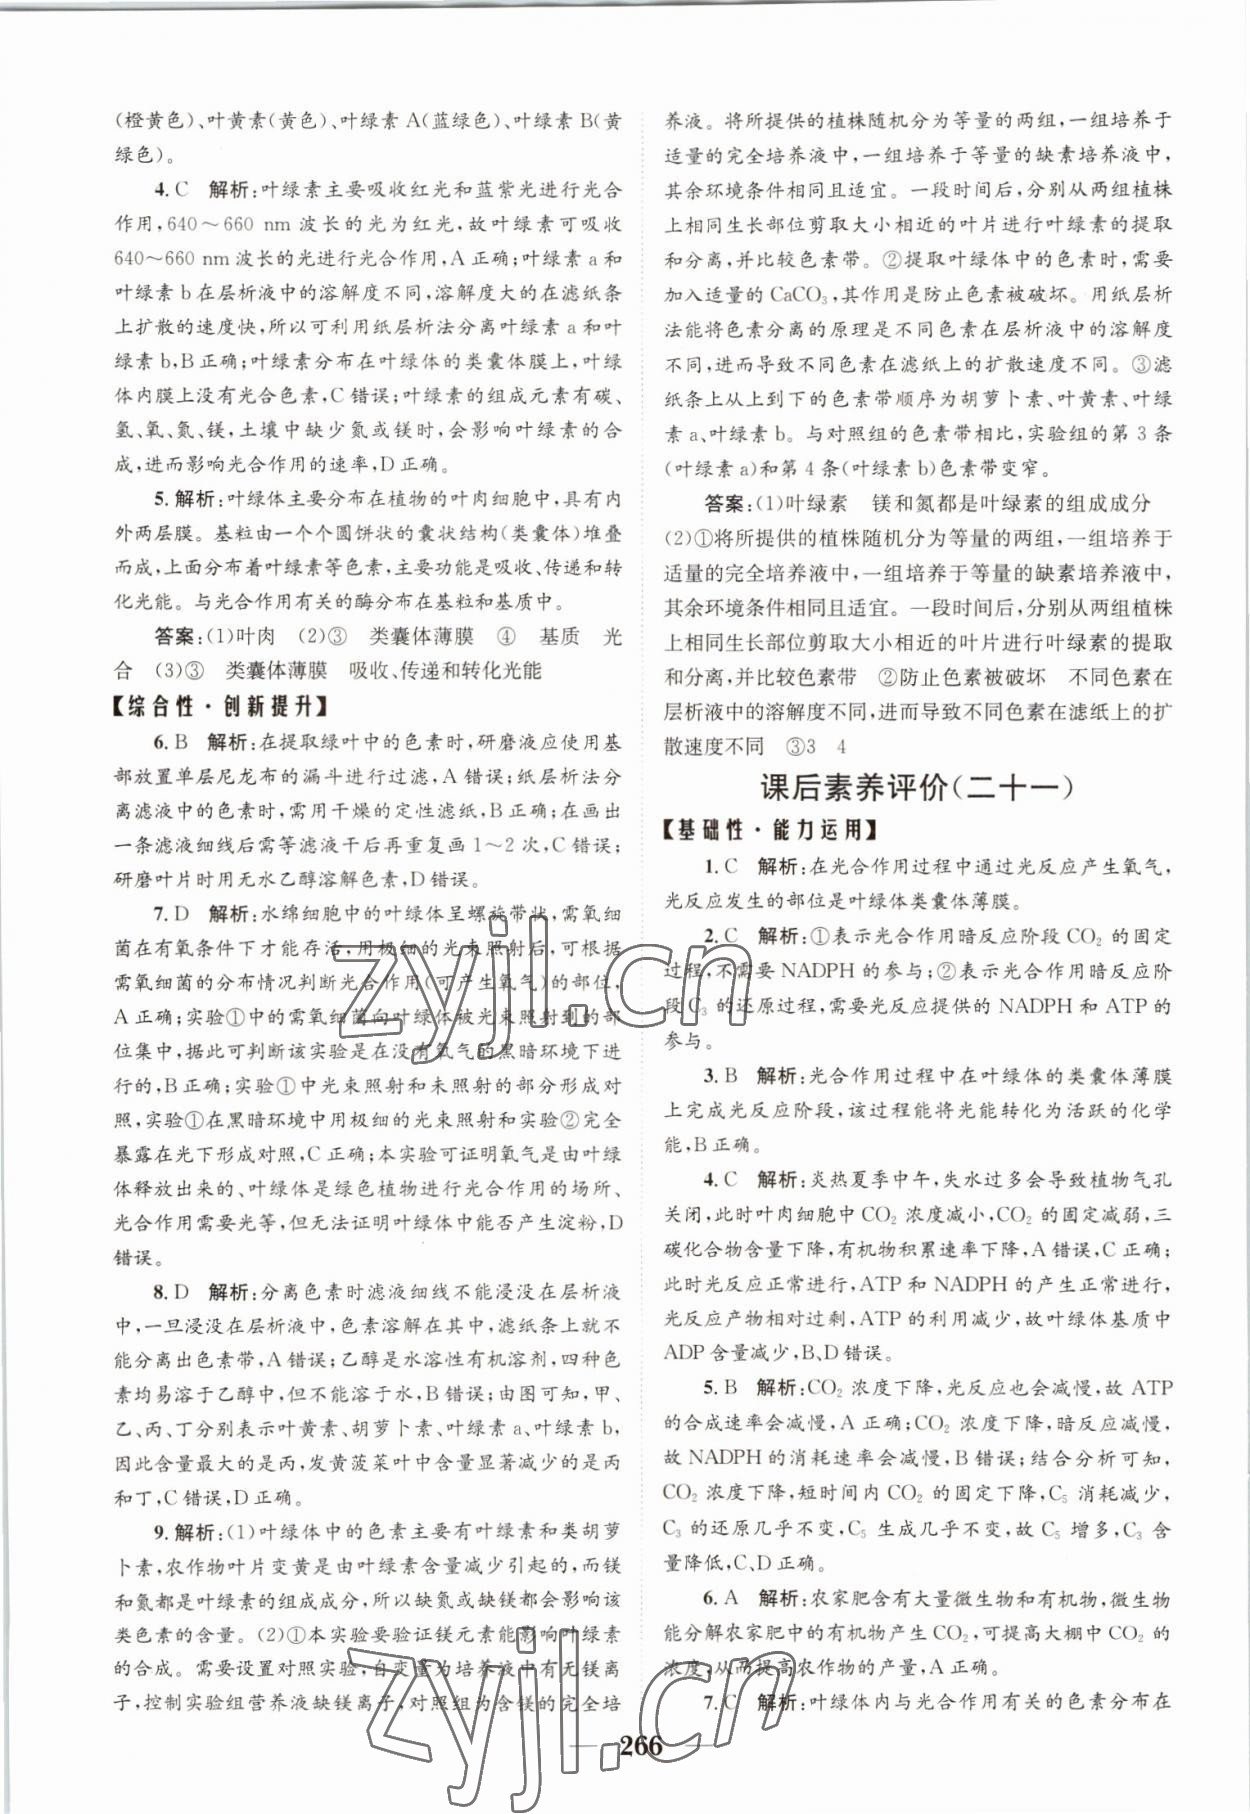 (橙黄色)、叶黄素(黄色)、叶绿素 A(蓝绿色)、叶绿素 B(黄
绿色)。
4. C 解析:叶绿素主要吸收红光和蓝紫光进行光合
作用,640～660 nm 波长的光为红光,故叶绿素可吸收
640～660 nm 波长的光进行光合作用,A 正确;叶绿素 a 和
叶绿素 b 在层析液中的溶解度不同,溶解度大的在滤纸条
上扩散的速度快,所以可利用纸层析法分离叶绿素 a 和叶
绿素 b,B 正确;叶绿素分布在叶绿体的类囊体膜上,叶绿
体内膜上没有光合色素,C 错误;叶绿素的组成元素有碳、
氢、氧、氮、镁,土壤中缺少氮或镁时,会影响叶绿素的合
成,进而影响光合作用的速率,D 正确。
5. 解析:叶绿体主要分布在植物的叶肉细胞中,具有内
外两层膜。基粒由一个个圆饼状的囊状结构(类囊体)堆叠
而成,上面分布着叶绿素等色素,主要功能是吸收、传递和转
化光能。与光合作用有关的酶分布在基粒和基质中。
答案:(1)叶肉 (2)③ 类囊体薄膜 ④ 基质 光
合 (3)③ 类囊体薄膜 吸收、传递和转化光能
【综合性·创新提升】
6. B 解析:在提取绿叶中的色素时,研磨液应使用基
部放置单层尼龙布的漏斗进行过滤,A 错误;纸层析法分
离滤液中的色素时,需用干燥的定性滤纸,B 正确;在画出
一条滤液细线后需等滤液干后再重复画 1～2 次,C 错误;
研磨叶片时用无水乙醇溶解色素,D 错误。
7. D 解析:水绵细胞中的叶绿体呈螺旋带状,需氧细
菌在有氧条件下才能存活,用极细的光束照射后,可根据
需氧细菌的分布情况判断光合作用(可产生氧气)的部位,
A 正确;实验①中的需氧细菌向叶绿体被光束照射到的部
位集中,据此可判断该实验是在没有氧气的黑暗环境下进
行的,B 正确;实验①中光束照射和未照射的部分形成对
照,实验①在黑暗环境中用极细的光束照射和实验②完全
暴露在光下形成对照,C 正确;本实验可证明氧气是由叶绿
体释放出来的、叶绿体是绿色植物进行光合作用的场所、
光合作用需要光等,但无法证明叶绿体中能否产生淀粉,D
错误。
8. D 解析:分离色素时滤液细线不能浸没在层析液
中,一旦浸没在层析液中,色素溶解在其中,滤纸条上就不
能分离出色素带,A 错误;乙醇是水溶性有机溶剂,四种色
素均易溶于乙醇中,但不能溶于水,B 错误;由图可知,甲、
乙、丙、丁分别表示叶黄素、胡萝卜素、叶绿素 a、叶绿素 b,
因此含量最大的是丙,发黄菠菜叶中含量显著减少的是丙
和丁,C 错误,D 正确。
9. 解析:(1)叶绿体中的色素主要有叶绿素和类胡萝
卜素,农作物叶片变黄是由叶绿素含量减少引起的,而镁
和氮都是叶绿素的组成成分,所以缺氮或缺镁时会影响该
类色素的含量。(2)①本实验要验证镁元素能影响叶绿素
的合成。需要设置对照实验,自变量为培养液中有无镁离
子,控制实验组营养液缺镁离子,对照组为含镁的完全培
养液。将所提供的植株随机分为等量的两组,一组培养于
适量的完全培养液中,一组培养于等量的缺素培养液中,
其余环境条件相同且适宜。一段时间后,分别从两组植株
上相同生长部位剪取大小相近的叶片进行叶绿素的提取
和分离,并比较色素带。②提取叶绿体中的色素时,需要
加入适量的 CaCO₃,其作用是防止色素被破坏。用纸层析
法能将色素分离的原理是不同色素在层析液中的溶解度
不同,进而导致不同色素在滤纸上的扩散速度不同。③滤
纸条上从上到下的色素带顺序为胡萝卜素、叶黄素、叶绿
素 a、叶绿素 b。与对照组的色素带相比,实验组的第 3 条
(叶绿素 a)和第 4 条(叶绿素 b)色素带变窄。
答案:(1)叶绿素 镁和氮都是叶绿素的组成成分
(2)①将所提供的植株随机分为等量的两组,一组培养于
适量的完全培养液中,一组培养于等量的缺素培养液中,
其余环境条件相同且适宜。一段时间后,分别从两组植株
上相同生长部位剪取大小相近的叶片进行叶绿素的提取
和分离,并比较色素带 ②防止色素被破坏 不同色素在
层析液中的溶解度不同,进而导致不同色素在滤纸上的扩
散速度不同 ③3 4
课后素养评价(二十一)
【基础性·能力运用】
1. C 解析:在光合作用过程中通过光反应产生氧气,
光反应发生的部位是叶绿体类囊体薄膜。
2. C 解析:①表示光合作用暗反应阶段 CO₂ 的固定
过程,不需要 NADPH 的参与;②表示光合作用暗反应阶
段 C₃ 的还原过程,需要光反应提供的 NADPH 和 ATP 的
参与。
3. B 解析:光合作用过程中在叶绿体的类囊体薄膜
上完成光反应阶段,该过程能将光能转化为活跃的化学
能,B 正确。
4. C 解析:炎热夏季中午,失水过多会导致植物气孔
关闭,此时叶肉细胞中 CO₂ 浓度减小,CO₂ 的固定减弱,三
碳化合物含量下降,有机物积累速率下降,A 错误,C 正确;
此时光反应正常进行,ATP 和 NADPH 的产生正常进行,
光反应产物相对过剩,ATP 的利用减少,故叶绿体基质中
ADP 含量减少,B、D 错误。
5. B 解析:CO₂ 浓度下降,光反应也会减慢,故 ATP
的合成速率会减慢,A 正确;CO₂ 浓度下降,暗反应减慢,
故 NADPH 的消耗速率会减慢,B 错误;结合分析可知,
CO₂ 浓度下降,短时间内 CO₂ 的固定下降,C₅ 消耗减少,
C₃ 的还原几乎不变,C₅ 生成几乎不变,故 C₅ 增多,C₃ 含
量降低,C、D 正确。
6. A 解析:农家肥含有大量微生物和有机物,微生物
能分解农家肥中的有机物产生 CO₂,可提高大棚中 CO₂ 的
浓度,从而提高农作物的产量,A 正确。
7. C 解析:叶绿体内与光合作用有关的色素分布在
266
zyjl.cn
zyjl.cn